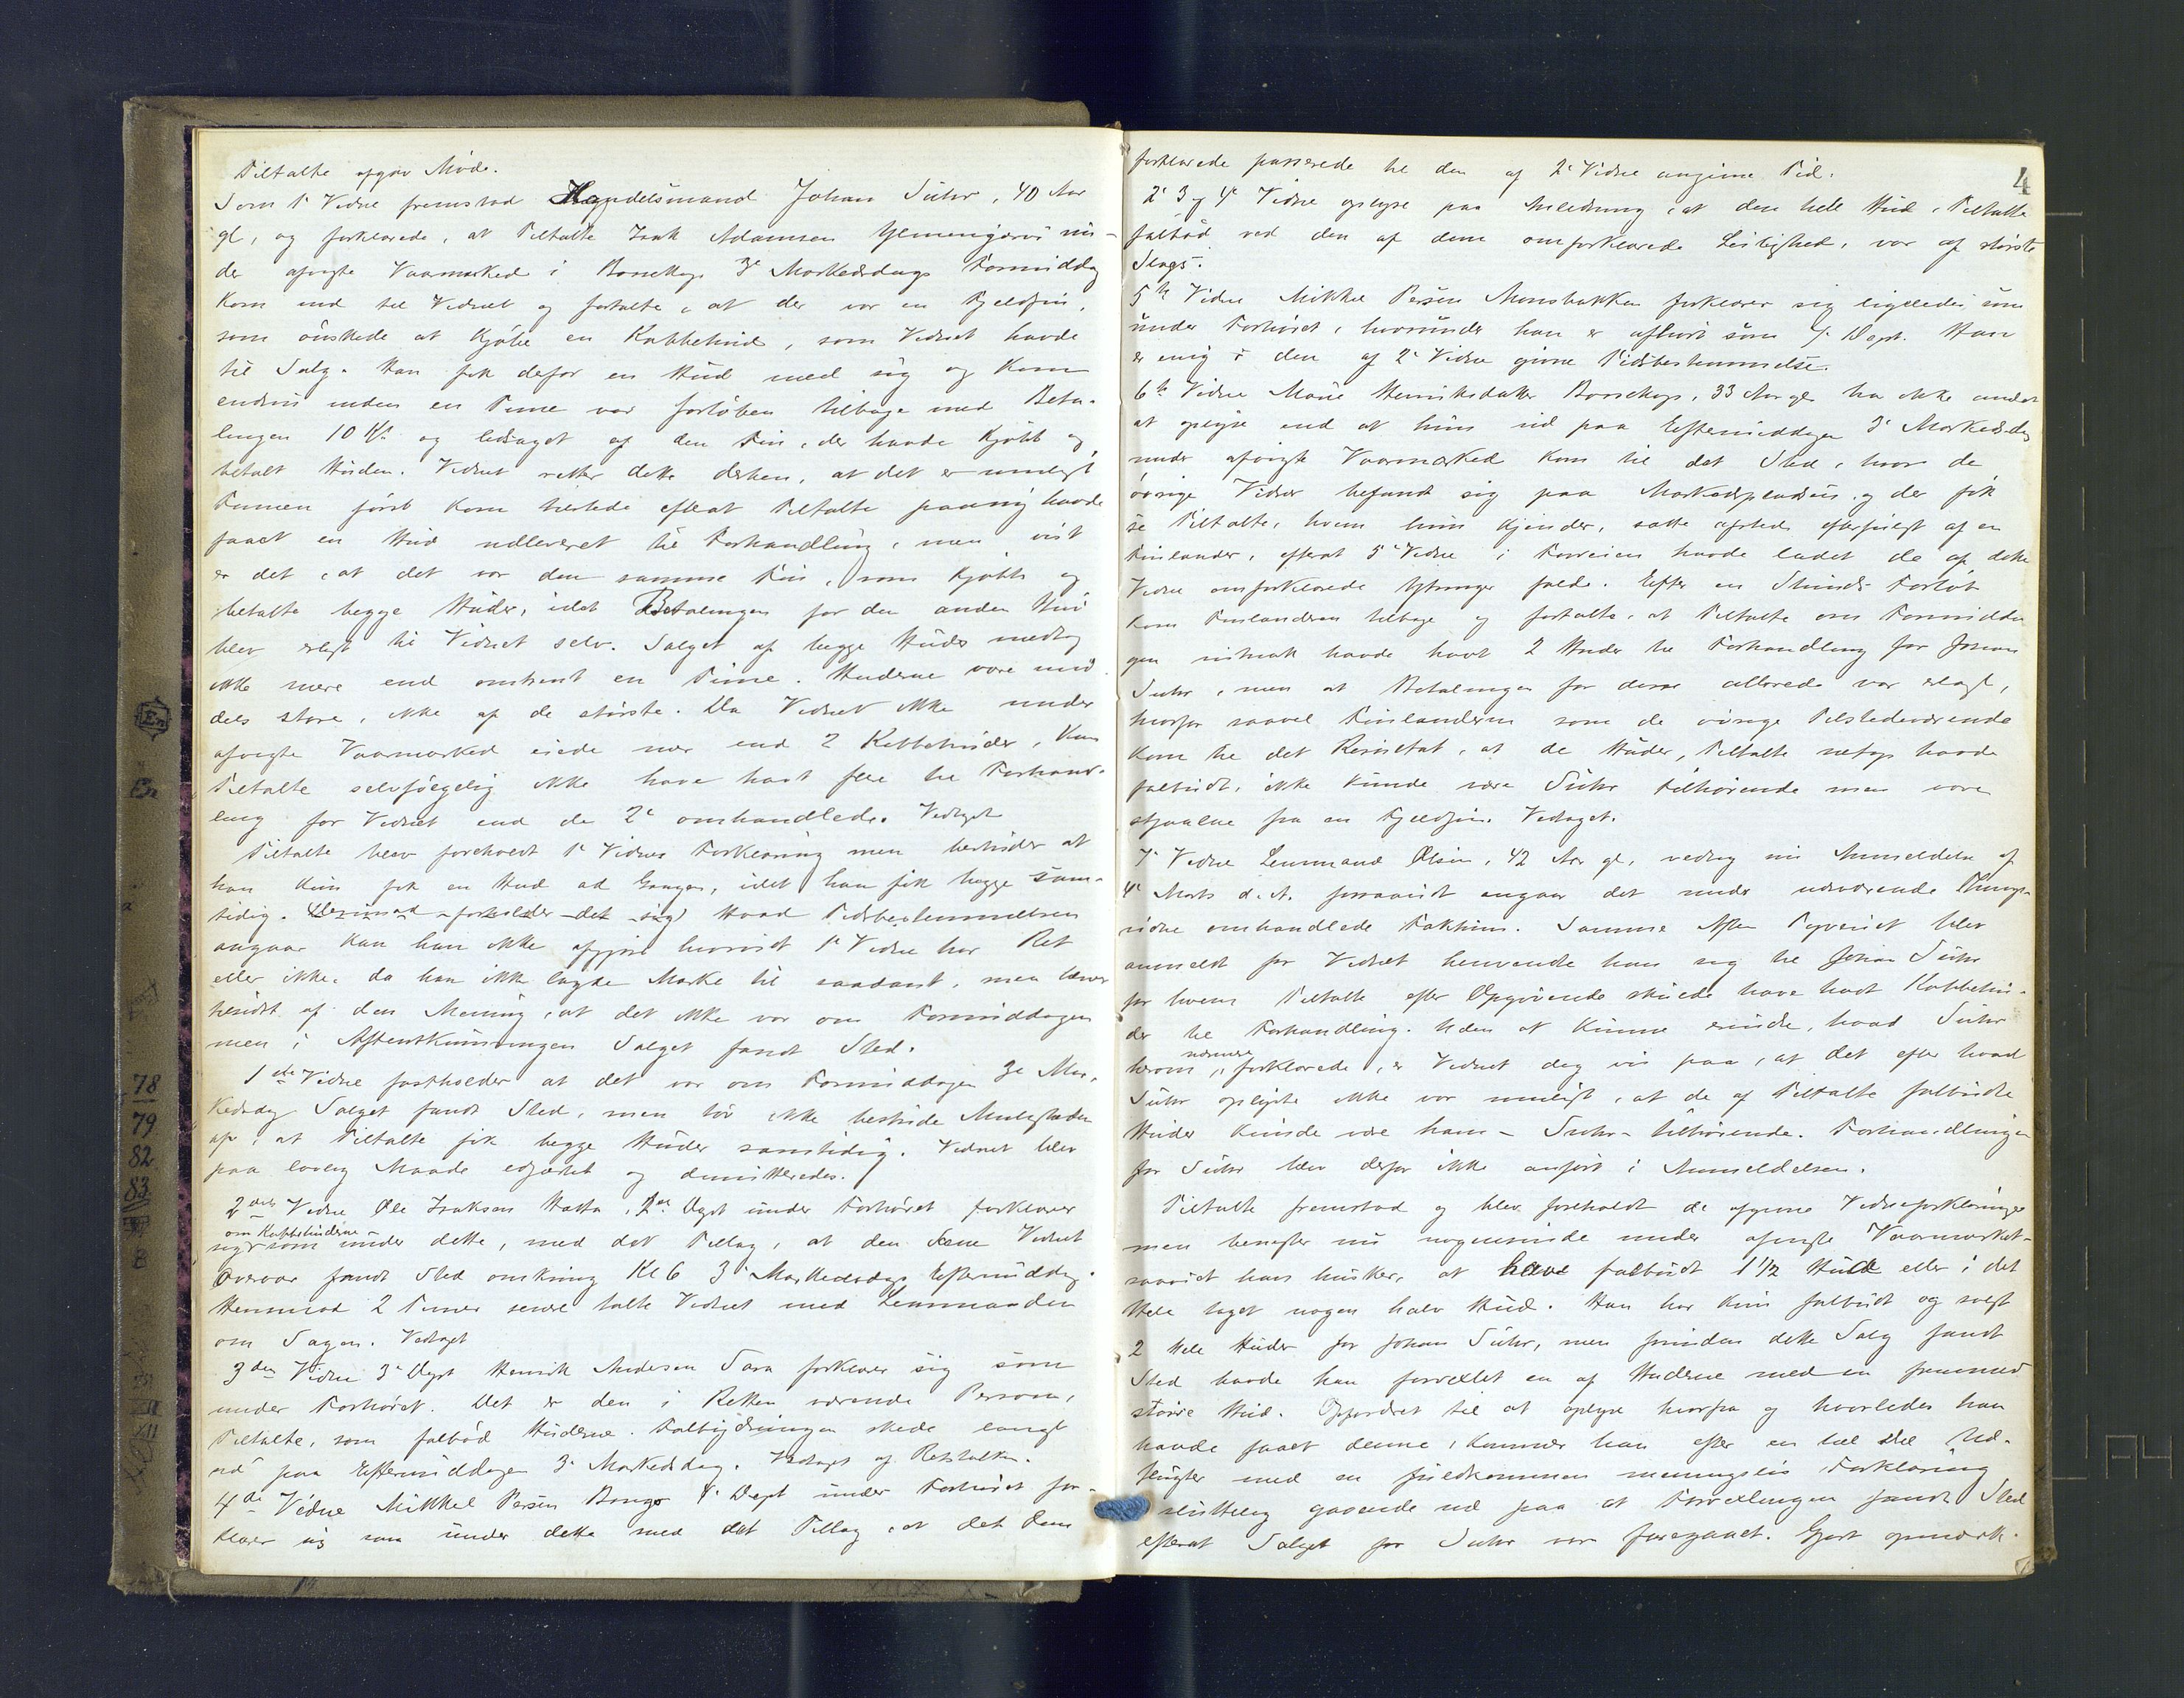 Tiltalte afgav Møde.
Som 1ste Vidne fremstod Handelsmand Johan Suhr, 40 Aar
gl, og forklarede, at Tiltalte Isak Adamsen Yemenijærvi un-
der afvigte Vaarmarked i Bossekop 3die Markedsdags Formiddag
kom ind til Vidnet og fortalte, at der var en Fjeldfin,
som ønskede at kjøbe en Kobbehud, som Vidnet havde
til Salg. Han fik defor en Hud med sig og kom
endnu inden en Time var forløben tilbage med Beta-
lingen 10 Kr og ledsaget af den Fin, der havde kjøbt og
betalt Huden. Vidnet retter dette derhen, at det er muligt
Finnen først kom tilstede efterat Tiltalte paany havde
faaet en Hud udleveret til Forhandling, men vist
er det, at det var den samme Fin, som kjøbte og
betalte begge Huder, idet Betalingen for den anden Hud
blev erlagt til Vidnet selv. Salget af begge Huder medtog
ikke mere end omtrent en Time. Huderne vare mid-
dels store, ikke af de største. Da Vidnet ikke under
afvigte Vaarmarked eiede mer end 2 Kobbehuder, kan
Tiltalte selvfølgelig ikke have havt flere til Forhand-
ling for Vidnet end de 2de omhandlede. Vedtaget
Tiltalte blev foreholdt 1ste Vidnes Forklaring men bestrider at
han kun fik en Hud ad Gangen, idet han fik begge sam-
tidig. Derimod forholder det sig Hvad Tidsbestemmelsen
angaar kan han ikke afgjøre hvorvidt 1ste Vidne har Ret
eller ikke, da han ikke lagde Mærke til saadant, men
bestemt af den Mening, at det ikke var om Formiddagen
men i Aftenskumringen Salget fandt Sted.
1ste Vidne fastholder at det var om Formiddagen 3die Mar-
kedsdag Salget fandt Sted, men tør ikke bestride Muligheden
af, at Tiltalte fik begge Huder samtidig. Vidnet blev
paa lovlig Maade edfæstet og dimitteredes.
2det Vidne Ole Isaksen Hætta, 2den Dept under Forhøret forklarer
om Kobbehuderne
sig som under dette, med det Tillæg, at den Scene Vidnet
overvar fandt Sted omkring Kl 6 3die Markedsdags Eftermiddag.
Henimod 2 Timer senere talte Vidnet med Lensmanden
om Sagen. Vedtaget
3die Vidne 3die Dept Henrik Andersen Sara forklarer sig som
under Forhøret. Det er den i Retten værende Person,
Tiltalte, som falbød Huderne. Falbydningen skede langt
ud paa Eftermiddagen 3die Markedsdag. Vedtaget af Rettstolken.
4de Vidne Mikkel Persen Bongo 4de Dept under Forhøret for-
klarer sig som under dette med det Tillæg, at det dem
forklarede passerede til den af 2det Vidne angivne Tid.
4
2det 3die og 4de Vidne oplyse paa Anledning, at den hele Hud, Tiltalte
falbød ved den af dem omforklarede Leilighed, var af største
Slags.
5te Vidne Mikkel Persen Monsbakken forklarer sig ligeledes som
under Forhøret, hvorunder han er afhørt som Dept. Han
er enig i den af 2det Vidne givne Tidsbestemmelse.
6te Vidne Marie Henriksdatter Bossekop, 33 Aar gl har ikke andet
at oplyse end at hun ud paa Eftermiddagen 3die Markedsdag
under afvigte Vaarmarked kom til det Sted, hvor de
øvrige Vidner befandt sig paa Markedspladsen og der fik
se Tiltalte, hvem hun kjender, satte afsted efterfulgt af en
Finlænder, efterat 5te Vidne i Forveien havde ladet de af dette
Vidne omforklarede Ytringer falde. Efter en Stunds Forløb
kom Finlænderen tilbage og fortalte, at Tiltalte om Formidda-
gen nemlig havde havt 2 Huder til Forhandling for Johan
Suhr, men at Betalingen for disse allerede var erlagt,
hvorfor saavel Finlænderen som de øvrige Tilstedeværende
kom til det Resultat, at de Huder, Tiltalte netop havde
falbudt, ikke kunde være Suhr tilhørende men vare
stjaalne fra en Fjeldfin. Vedtaget.
7de Vidne Lensmand Olsen, 42 Aar gl, vedtog sin Anmeldelse af
4de Marts d. A. forsaavidt angaar det under nærværende Things-
vidne omhandlede Faktum. Samme Aften Tyveriet blev
anmeldt for Vidnet henvendte han sig til Johan Suhr
for hvem Tiltalte efter Opgivende skulde have havt Kobbehu-
der til Forhandling. Uden at kunne erindre, hvad Suhr
nærmere
herom forklarede, er Vidnet dog vis paa, at det efter hvad
Suhr oplyste ikke var muligt, at de af Tiltalte falbudte
Huder kunde være ham – Suhr – tilhørende. Forhandlingen
for Suhr blev derfor ikke anført i Anmeldelsen.
Tiltalte fremstod og blev foreholdt de afgivne Vidneforklaringer
men benegter nu nogensinde under afvigte Vaarmarked –
saavidt han husker, at have falbudt 1 1/2 Hud eller i det
Hele taget nogen halv Hud. Han har kun falbudt og solgt
2 hele Huder for Johan Suhr, men forinden dette Salg fandt
Sted havde han forvexlet en af Huderne med en fremmed
større Hud. Opfordret til at oplyse hvorfra og hvorledes han
havde faaet denne, kommer han efter en hel Del Ud-
flugter med en fuldkommen meningsløs Forklaring
sluttelig gaaende ud paa at Forvexlingen fandt Sted
efterat Salget for Suhr var foregaaet. Gjort opmærk-
78
79
82
83